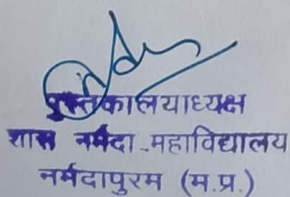 पुस्तकालयाध्यक्ष
शास नर्मदा महाविद्यालय
नर्मदापुरम (म.प्र.)